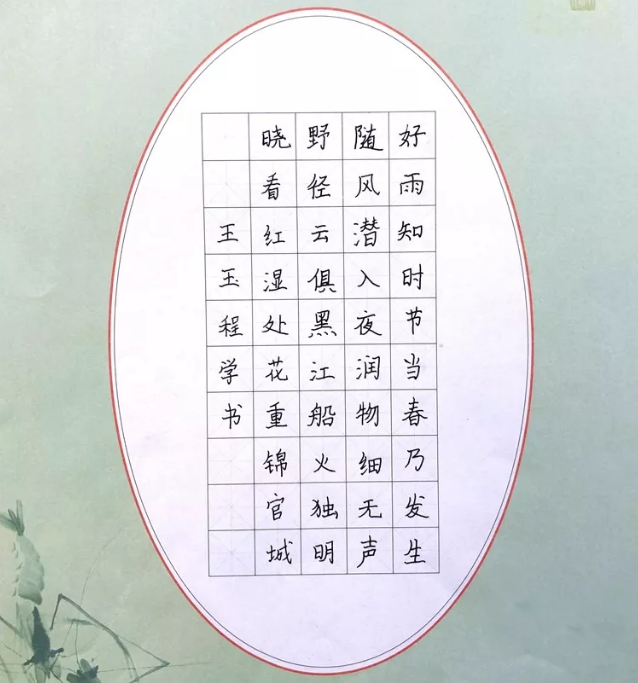 好雨知时节当春乃发生
随风潜入夜润物细无声
野径云俱黑江船火独明
晓看红湿处花重锦官城
王玉程学书